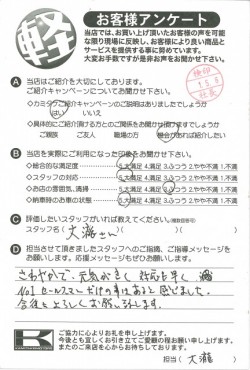 軽
お客様アンケート
当店では、お買い上げ頂いたお客様の声を可能
な限り現場に反映し、お客様により良い商品と
サービスを提供する事に努めています。
大変お手数ですが是非お声をお聞かせ下さい。
A 当店はご紹介を大切にしております。
ご紹介キャンペーンについてお聞かせ下さい。
ご紹介キャンペーンの説明はありましたでしょうか
はい いいえ
・具体的にご紹介頂ける方とのご関係をお聞かせ頂けますでしょうか
ご親族 ご友人 職場の方 機会があれば紹介したい
B 当店を実際にご利用になられた印象をお聞かせ下さい。
・総合的な満足度 5.大満足 4.満足 3.ふつう 2.やや不満 1.不満
・スタッフの対応 5.大満足 4.満足 3.ふつう 2.やや不満 1.不満
・お店の雰囲気、清掃 5.大満足 4.満足 3.ふつう 2.やや不満 1.不満
・納車時のお車の状態 5.大満足 4.満足 3.ふつう 2.やや不満 1.不満
C 評価したいスタッフがいれば教えてください。(複数回答可)
スタッフ名( 大瀧さん )
D 担当させて頂きましたスタッフへのご指導、ご指導メッセージを
お願いします。応援メッセージもぜひお願いします。
さわやかで、元気がよく 対応も早く
No1 セールスマンだけの事はあると感じました。
今後もよろしくお願い致します。
K
ご協力に心よりお礼を申し上げます。
今後とも宜しくお引き立てご愛顧の程お願い申し上げます。
またのご来店を心からお待ちしております。
担当( 大瀧 )